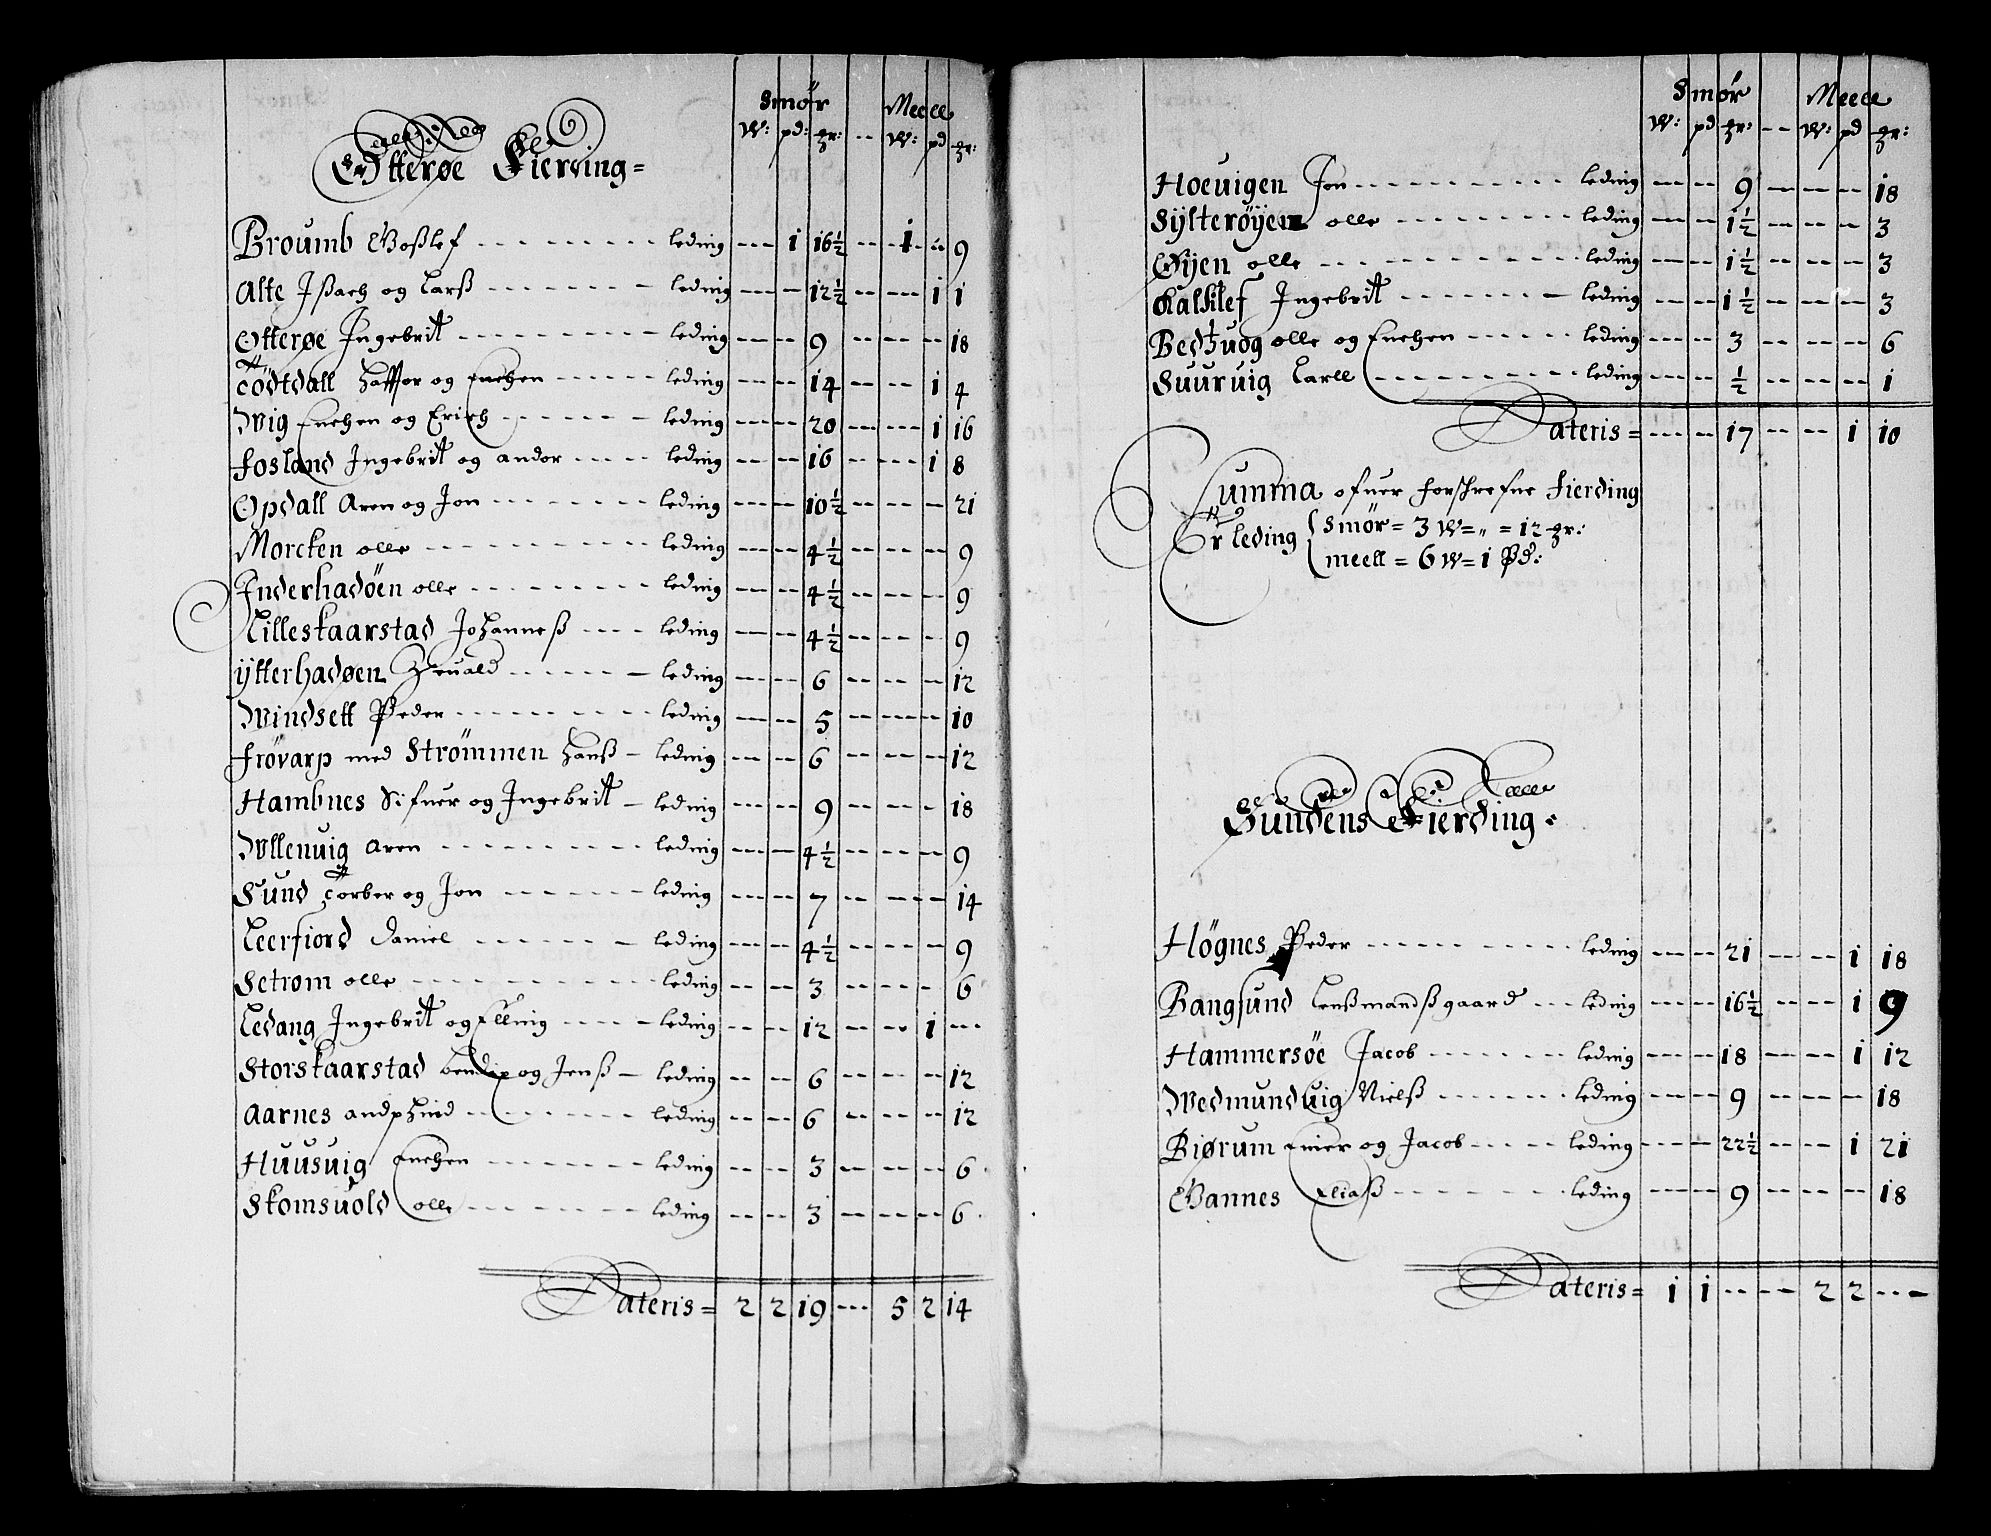 Smør Meell
W: pd: ʒr: -- W: pd ʒr:
Otterøe Fierding =
Broumb Goßlef - - - leding --- 1 16½ -- 1 „ 9
Alte Ißach og Larß - - - leding --- -- 12½ -- --- 1 1
Otterøe Ingebrit - - - leding --- -- 9 -- -- -- 18
Tödtdall Haffor og Enchen - - - leding --- -- 14 -- -- 1 4
Wig Enchen og Erich - - - leding --- -- 20 -- --- 1 16
Fosland Ingebrit og Andor - - - leding --- -- 16 -- --- 1 8
Opdall Aren og Jon - - - leding --- -- 10½ -- -- -- 21
Morcken olle - - - leding --- -- 4½ -- -- -- 9
Inderhadöen olle - - - leding --- -- 4½ -- -- -- 9
Lilleskaarstad Johanneß - - - leding --- -- 4½ -- -- -- 9
Ytterhadøen - - - leding --- -- 6 -- -- -- 12
Windsett Peder - - - leding --- -- 5 -- --- -- 10
Frövarp med Strömmen Hanß - leding --- -- 6 -- -- -- 12
Hambnes Sifuer og Ingebrit - leding --- -- 9 -- -- - 18
Wllenuig Aren - - - leding --- -- 4½ -- -- -- 9
Sund Torber og Jon - - - leding --- -- 7 -- --- -- 14
Leerfiord Daniel - - - leding --- -- 4½ -- -- -- 9
Setrom olle - - - leding --- -- 3 -- -- - 6
Ledang Ingebrit og Elling - - - leding -- -- 12 -- -- 1 ---
Storskaarstad Bendix og Jenß - leding -- -- 6 -- -- -- 12
Aarnes - - - leding -- -- 6 -- -- -- 12
Huusuig Enchen - - - leding -- -- 3 -- -- -- 6
Skomsuold olle - - - leding -- -- 3 -- -- -- 6
Lateris = 2 2 19 --- 5 2 14
Smør Meell
W: pd ʒr: -- W: pd ʒr:
Hoeuigen Jon - - - leding --- -- 9 -- -- -- 18
Sylterøyen olle - - - leding --- -- 1½ -- -- -- 3
Øyen olle - - - leding --- -- 1½ -- -- -- 3
Kalklef Ingebrit - - - leding --- -- 1½ -- -- -- 3
olle og Enchen - - - leding --- -- 3 -- -- -- 6
Suuruig Carll - - - leding --- -- ½ -- -- -- 1
Lateris = --- -- 17 -- -- 1 10
Summa ofuer forschrefne Fierding
Er leding { Smör = 3 W = „ = 12 ʒr:
meell = 6 W = 1 Pd:
Sundens Fierding
Högnes Peder - - - leding --- -- 21 -- -- 1 18
Bangsund Lenßmandß gaard - - - leding --- -- 16½ -- -- 1 9
Hammersöe Jacob - - - leding --- -- 18 -- -- 1 12
Wedmunduig Nielß - - - leding --- -- 9 -- -- -- 18
Biørum Einer og Jacob - - - leding --- -- 22½ -- -- 1 21
Gannes Eliaß - - - leding --- -- 9 -- -- -- 18
Lateris = 1 1 -- -- 2 2 -- -